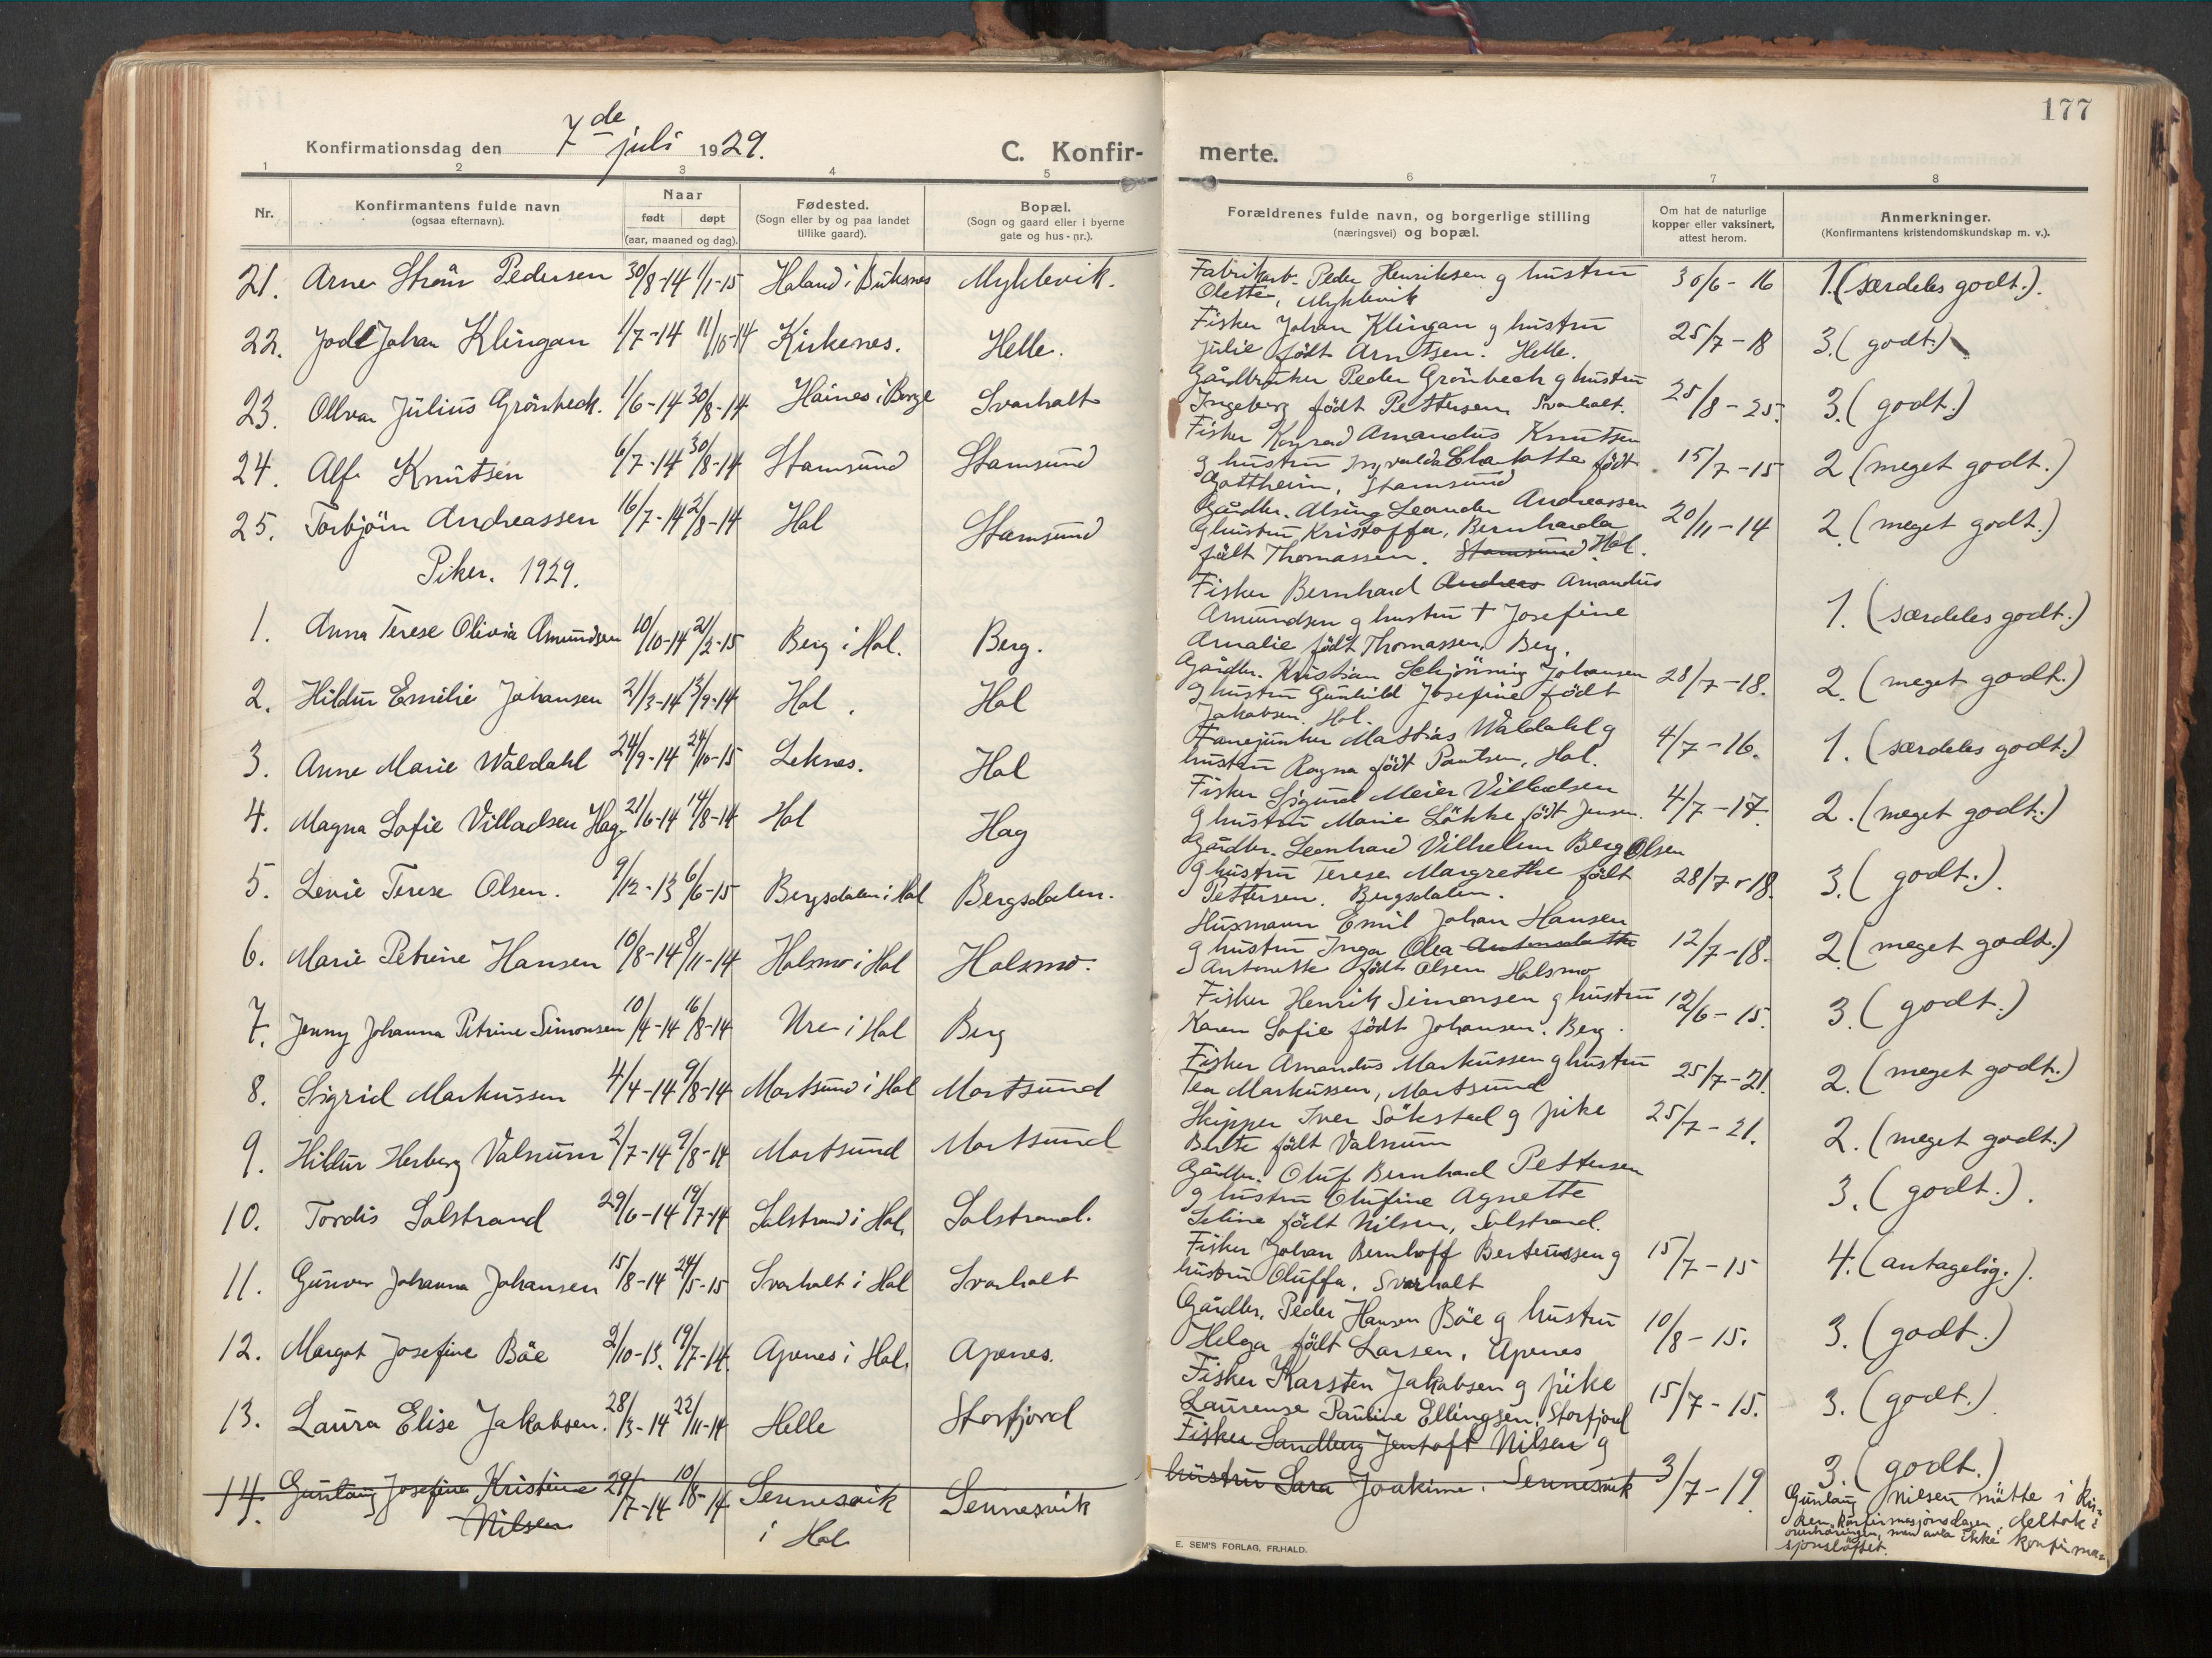 177
Konfirmationsdag den 7de juli 1929.
C. Konfir- merte.
1 2 3 4 5 6 7 8
Nr.
Konfirmantens fulde navn
(ogsaa efternavn).
Naar
født døpt
(aar, maaned og dag).
Fødested.
(Sogn eller by og paa landet
tillike gaard).
Bopæl.
(Sogn og gaard eller i byerne
gate og hus-nr.).
Forældrenes fulde navn, og borgerlige stilling
(næringsvei) og bopæl.
Om hat de naturlige
kopper eller vaksinert,
attest herom.
Anmerkninger.
(Konfirmantens kristendomskundskap m. v.).
21. Arne Pedersen 30/8-14 1/1-15 Haland i Buksnes Myklevik.
Fabrikarb. Peder Henriksen g hustru
Olette, Myklevik
30/6-16 1. (særdeles godt.).
22. Johan Klingan 1/7-14 11/10-14 Kirkenes. Helle.
Fisker Johan Klingan g hustru
Julie født Arntsen. Helle.
25/7-18 3. (godt.)
23. Julius Grönbeck. 1/6-14 30/8-14 Svarholt
Gårdbruker Peder Grönbeck g hustru
Ingeborg født Pettersen Svarholt.
25/8-25. 3. (godt.)
24. Alf Knutsen 6/7-14 30/8-14 Stamsund Stamsund
Fisker Konrad Amandus Knutsen
g hustru født
Stamsund
15/7-15 2 (meget godt.)
25. Torbjörn Andreassen 16/7-14 2/8-14 Hol Stamsund
Gårdbr. Alsing Leander Andreassen
g hustru Kristoffa, Bernharda
født Thomassen. Stamsund Hol.
20/11-14 2. (meget godt.)
Piker. 1929.
1. Anna Terese Olivia Amundsen 10/10-14 21/2-15 Berg i Hol. Berg.
Fisker Bernhard Andreas Amandus
Amundsen g hustru † Josefine
Amalie født Thomassen, Berg.
1. (særdeles godt.)
2. Hildur Emilie Johansen 21/3-14 13/9-14 Hol. Hol
Gårdbr. Kristian Schjönning Johansen
g hustru Gunhild Josefine født
Jakobsen. Hol.
28/7-18. 2. (meget godt.)
3. Anne Marie Waldahl 24/9-14 24/10-15 Leknes. Hol
Fanejunker Mattias Waldahl g
hustru Ragna født Paulsen, Hol.
4/7-16. 1. (særdeles godt.)
4. Magna Sofie Villadsen Hag. 21/6-14 14/8-14 Hol Hag
Fisker Sigurd Meier Villadsen
g hustru Marie Lökke født Jensen.
4/7-17. 2. (meget godt.)
5. Levie Terese Olsen. 9/12-13 6/6-15 Bergsdalen i Hol Bergsdalen.
Gårdbr. Leonhard Vilhelm Berg Olsen
g hustru Terese Margrethe født
Pettersen. Bergsdalen.
28/7-18. 3. (godt.).
6. Marie Petrine Hansen 10/8-14 8/11-14 Holsmo i Hol Holsmo.
Husmann Emil Johan Hansen
g hustru Inga Olea
Antonette født Olsen Holsmo
12/7-18. 2 (meget godt.)
7. Jenny Johanna Petrine Simonsen 10/4-14 16/8-14 Ure i Hol Berg
Fisker Henrik Simonsen g hustru
Karen Sofie født Johansen. Berg.
12/6-15. 3. (godt.)
8. Sigrid Markussen 4/4-14 9/8-14 Mortsund i Hol Mortsund
Fisker Amandus Markussen g hustru
Tea Markussen, Mortsund
25/7-21. 2. (meget godt.)
9. Hildur Herberg Valnum 2/7-14 9/8-14 Mortsund Mortsund
Skipper Iver Sökstad g pike
Berte født Valnum
25/7-21. 2. (meget godt.)
10. Tordis Solstrand 29/6-14 19/7-14 Solstrand i Hol, Solstrand.
Gårdbr. Oluf Bernhard Pettersen
g hustru Olufine Agnette
Seline født Nilsen, Solstrand.
3. (godt.).
11. Gunvor Johanna Johansen 15/8-14 24/5-15 Svarholt i Hol Svarholt
Fisker Johan Bernhoff Berteussen g
hustru Oluffa, Svarholt
15/7-15 4. (antagelig.).
12. Margot Josefine Böe 2/10-13. 19/7-14. Apenes i Hol. Apenes.
Gårdbr. Peder Hansen Böe g hustru
Helga født Larsen, Apenes
10/8-15. 3. (godt.)
13. Laura Elise Jakobsen. 28/3-14 22/11-14 Helle Storfjord
Fisker Karsten Jakobsen g pike
Laurense Pauline Ellingsen, Storfjord
15/7-15. 3. (godt.)
14. Gunlaug Josefine Kristine
Nilsen 29/7-14 10/8-14 Sennesvik
i Hol Sennesvik
Fisker Sandberg Jentoft Nilsen g
hustru Sara Joakime. Sennesvik
3/7-19 3. (godt.)
Gunlaug Nilsen måtte i kir-
ken konfirmasjonsdagen, deltok i
overhöringen, men avla ikke konfirma-
sjonslöftet.
E. SEM'S FORLAG, FR.HALD.